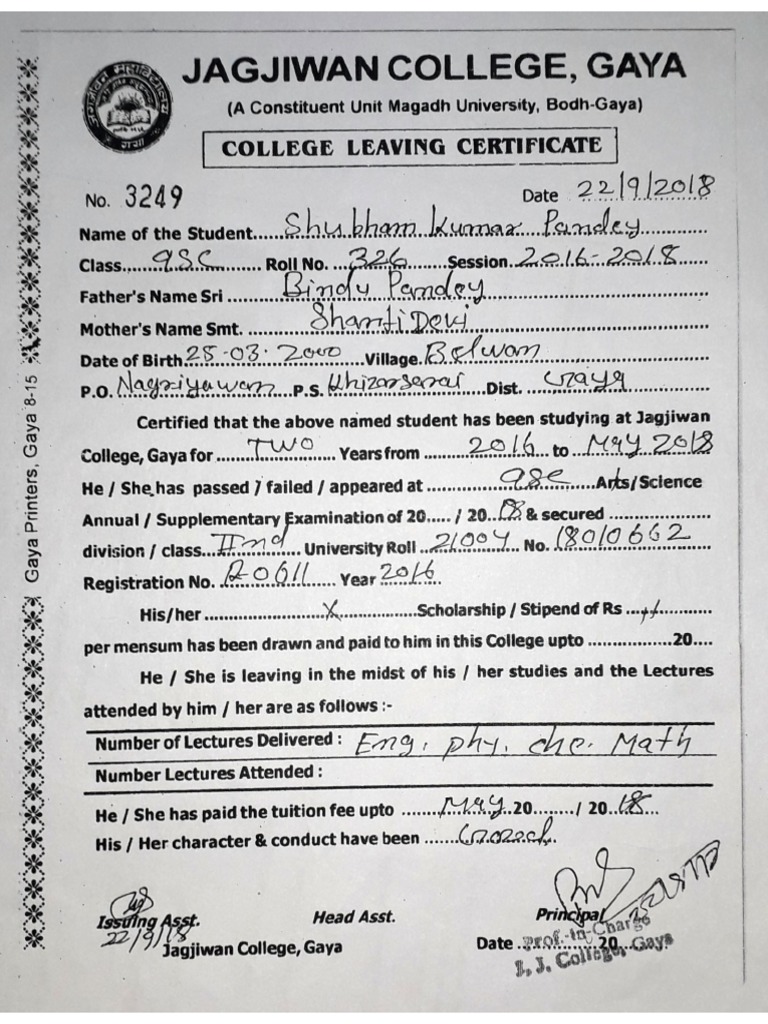 जगजीवन महाविद्यालय
गया
JAGJIWAN COLLEGE, GAYA
(A Constituent Unit Magadh University, Bodh-Gaya)
COLLEGE LEAVING CERTIFICATE
No. 3249 Date 22/9/2018
Name of the Student.....Shubham Kumar Pandey...............
Class....ISC.......... Roll No. ...326.........Session..2016-2018..
Father's Name Sri .........Bindu Pandey...............
Mother's Name Smt. ..........Shanti Devi...............
Date of Birth 25-03-2000 Village. Belwan
P.O. P.S. Khizarsarai Dist. Gaya
Certified that the above named student has been studying at Jagjiwan
College, Gaya for ......TWO...... Years from .......2016.. to ..May 2018
He / She has passed / failed / appeared at ............ISC......Arts/Science
Annual / Supplementary Examination of 20..... / 20..18 & secured ................
division / class...IInd........ University Roll ..21004... No. .18010662
Registration No. .R-0611....... Year 2016
His/her ....................X................Scholarship / Stipend of Rs ...............
per mensum has been drawn and paid to him in this College upto ................20....
He / She is leaving in the midst of his / her studies and the Lectures
attended by him / her are as follows :-
Number of Lectures Delivered : Eng, phy, che. Math
Number Lectures Attended :
He / She has paid the tuition fee upto ........May. 20......../ 20..18...
His / Her character & conduct have been ......Good.
Issuing Asst. Head Asst. Principal
22/9/18 Jagjiwan College, Gaya Date ................20............
Prof.-In-Charge
J. J. College, Gaya
Gaya Printers, Gaya 8-15